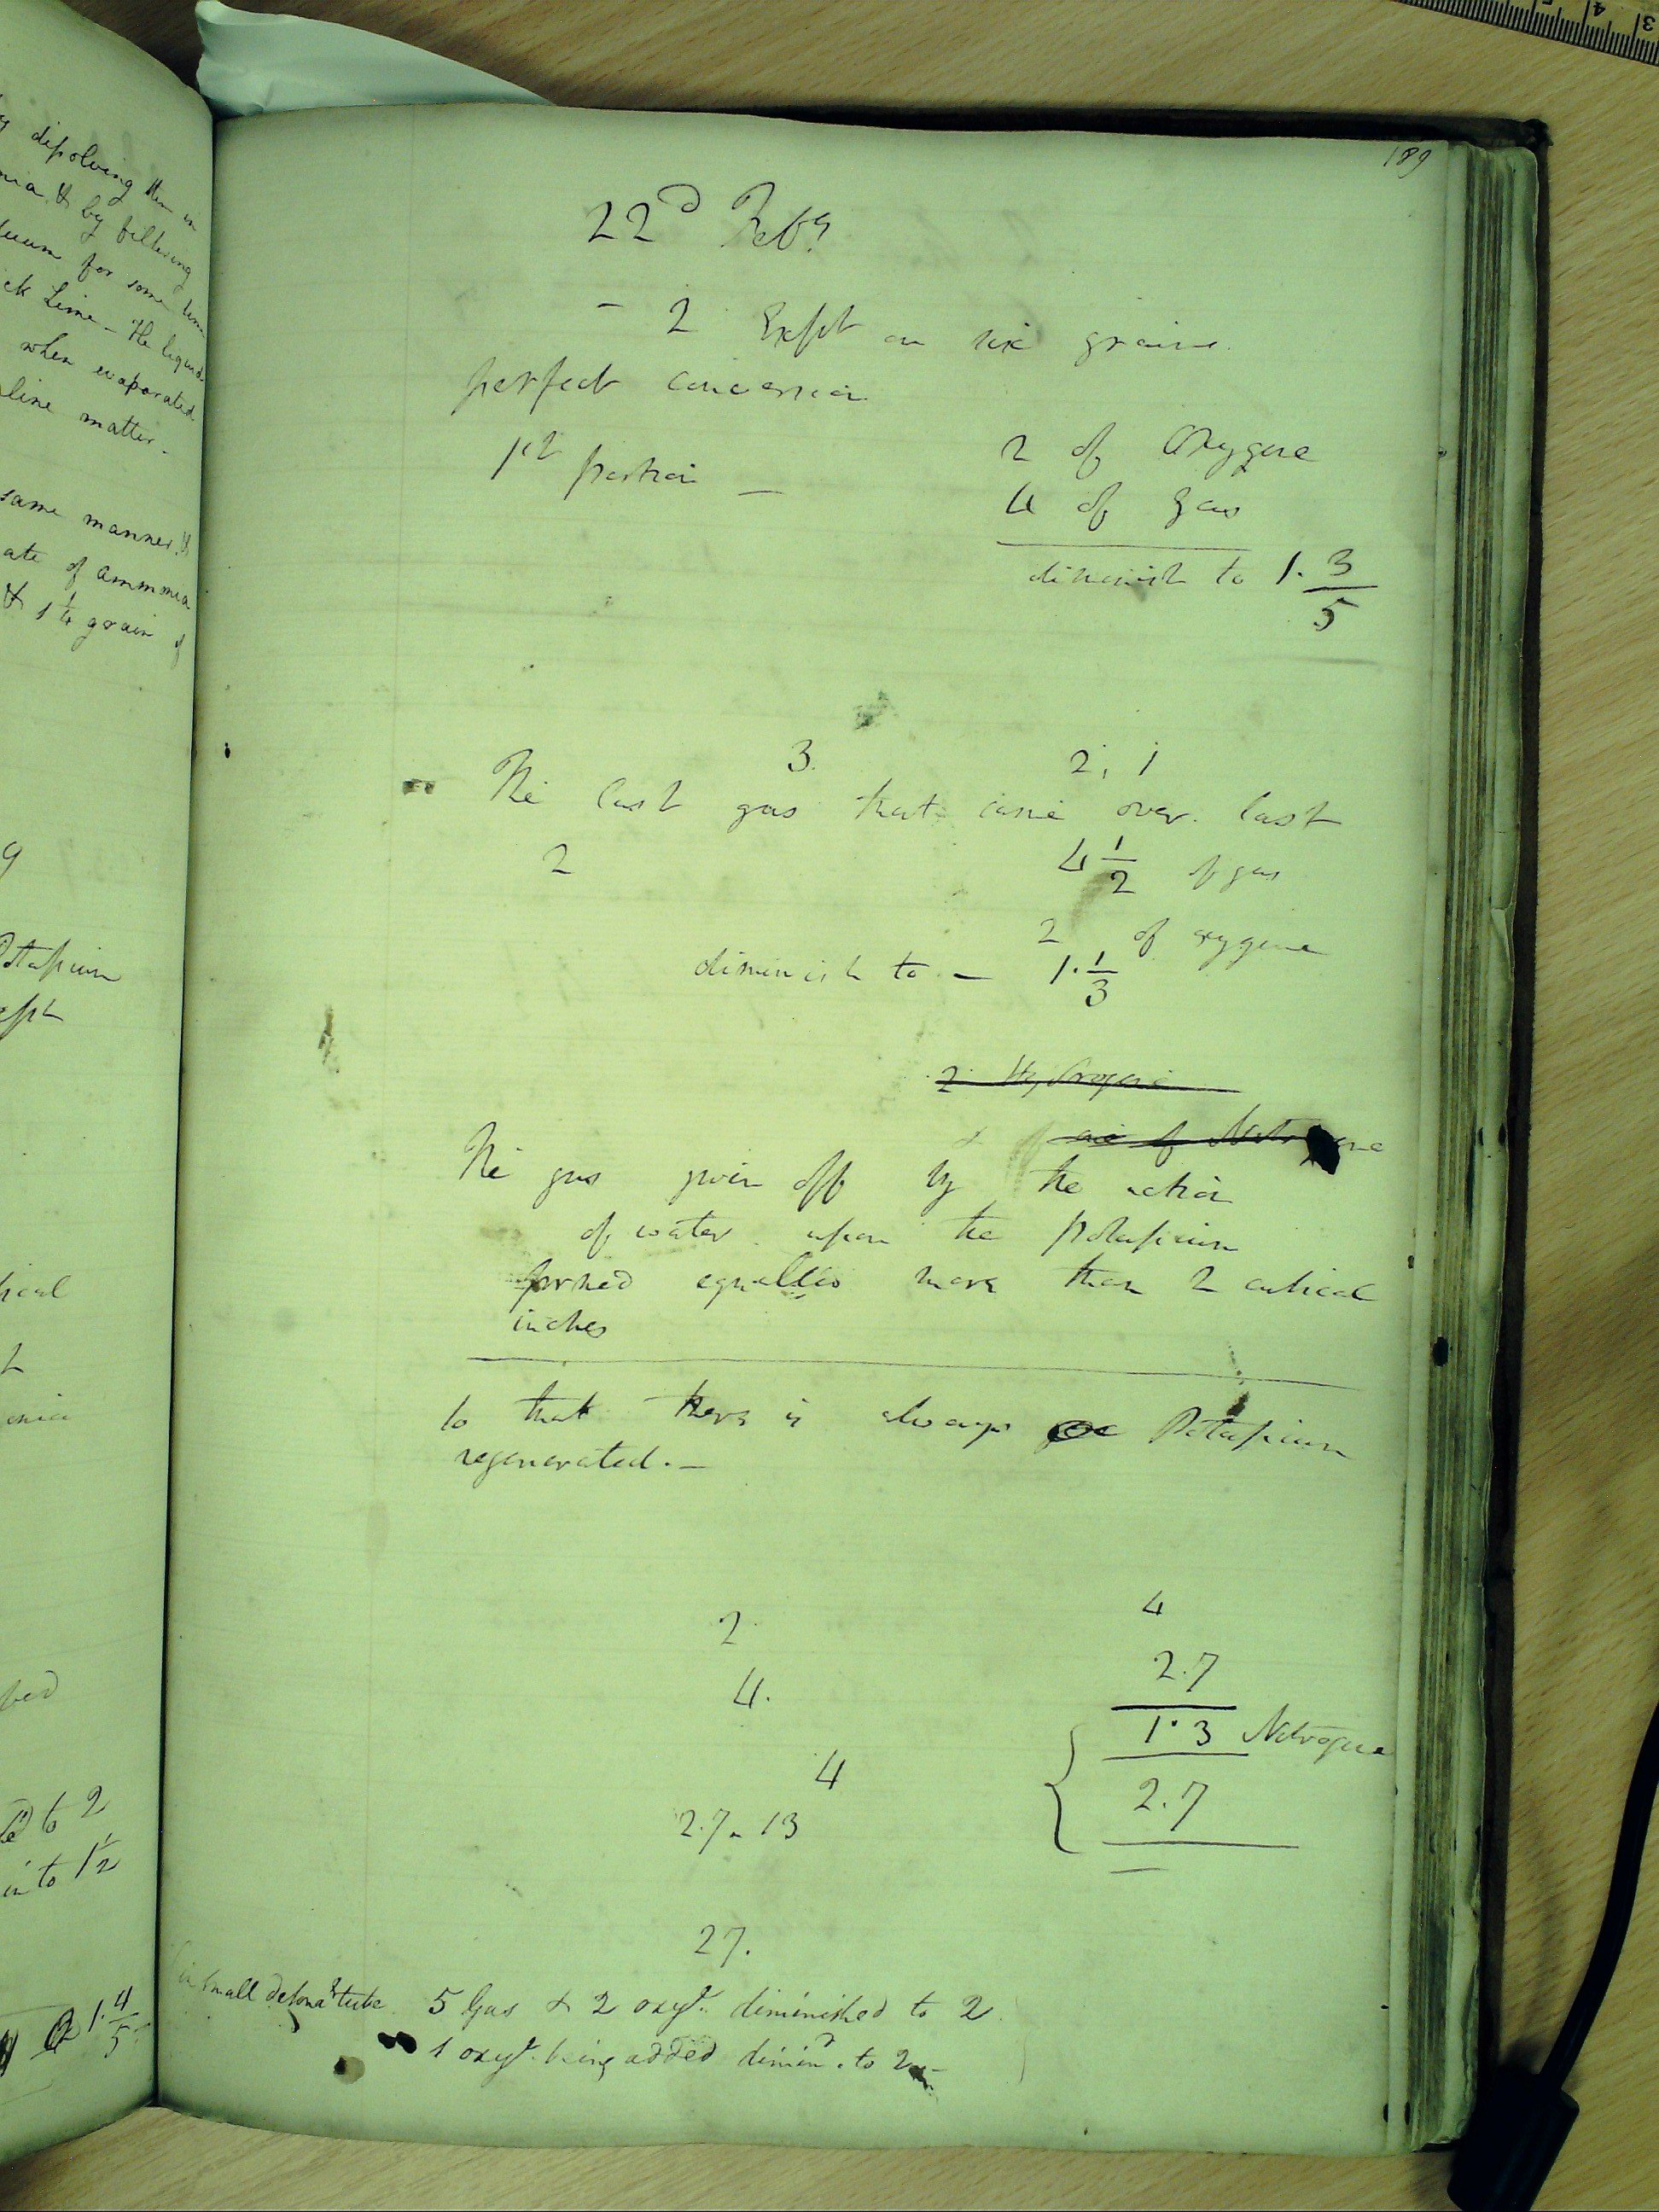 y dissolving them in
nia & by filtering
uum for some time
ck Lime - The liquid
when evaporated
line matter -
same manner, &
ate of ammonia
& 1 1/4 grain of
9
Potassium
ical
2
onia
to 2
in to 1 1/2
1. 4/5
189
22d Feby.
- 2 Expt on six grains.
perfect conversion
1st portion -
2 of Oxygene
4 of gas
diminish to 1. 3/5
3. 2, 1
The last gas that came over. last
2 4 1/2 of gas
2 of oxygene
diminish to - 1. 1/3
2. Hydrogene
& of Nitrogene
The gas given off by the action
of water upon the potassium
formed equalled more than 2 cubical
inches
so that there is always Potassium
regenerated. -
2. 4
4. 2.7
1.3 Nitrogene
4 2.7
2.7 - 13
27.
in small detona tube 5 Gas & 2 oxyg. diminished to 2
1 oxyg. being added dimind. to 2